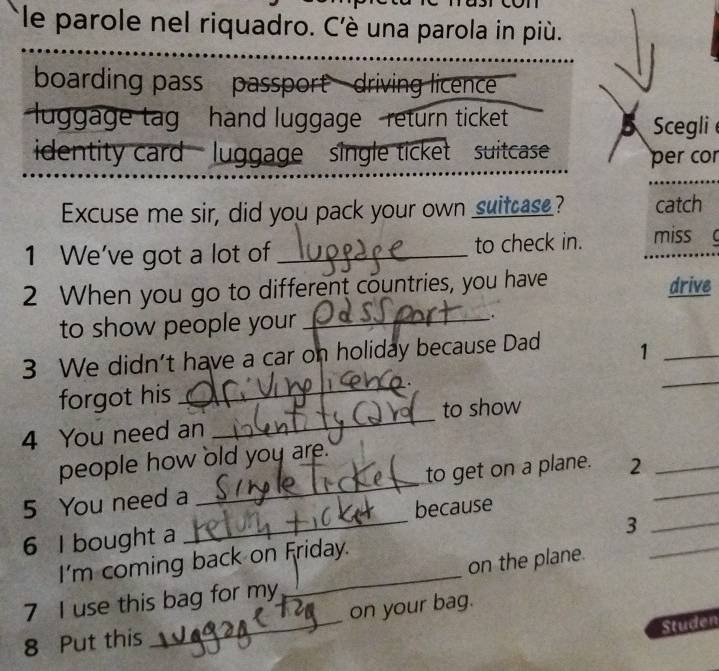 le parole nel riquadro. C'è una parola in più.
boarding pass passport driving licence
luggage tag hand luggage return ticket
identity card luggage single ticket suitcase
Excuse me sir, did you pack your own suitcase?
1 We've got a lot of luggage to check in.
2 When you go to different countries, you have
to show people your passport.
3 We didn't have a car on holiday because Dad
forgot his driving licence.
4 You need an identity card to show
people how old you are.
5 You need a single ticket to get on a plane.
6 I bought a return ticket because
I'm coming back on Friday.
7 I use this bag for my on the plane.
8 Put this luggage tag on your bag.
5 Scegli
per cor
catch
miss
drive
1
2
3
Studen